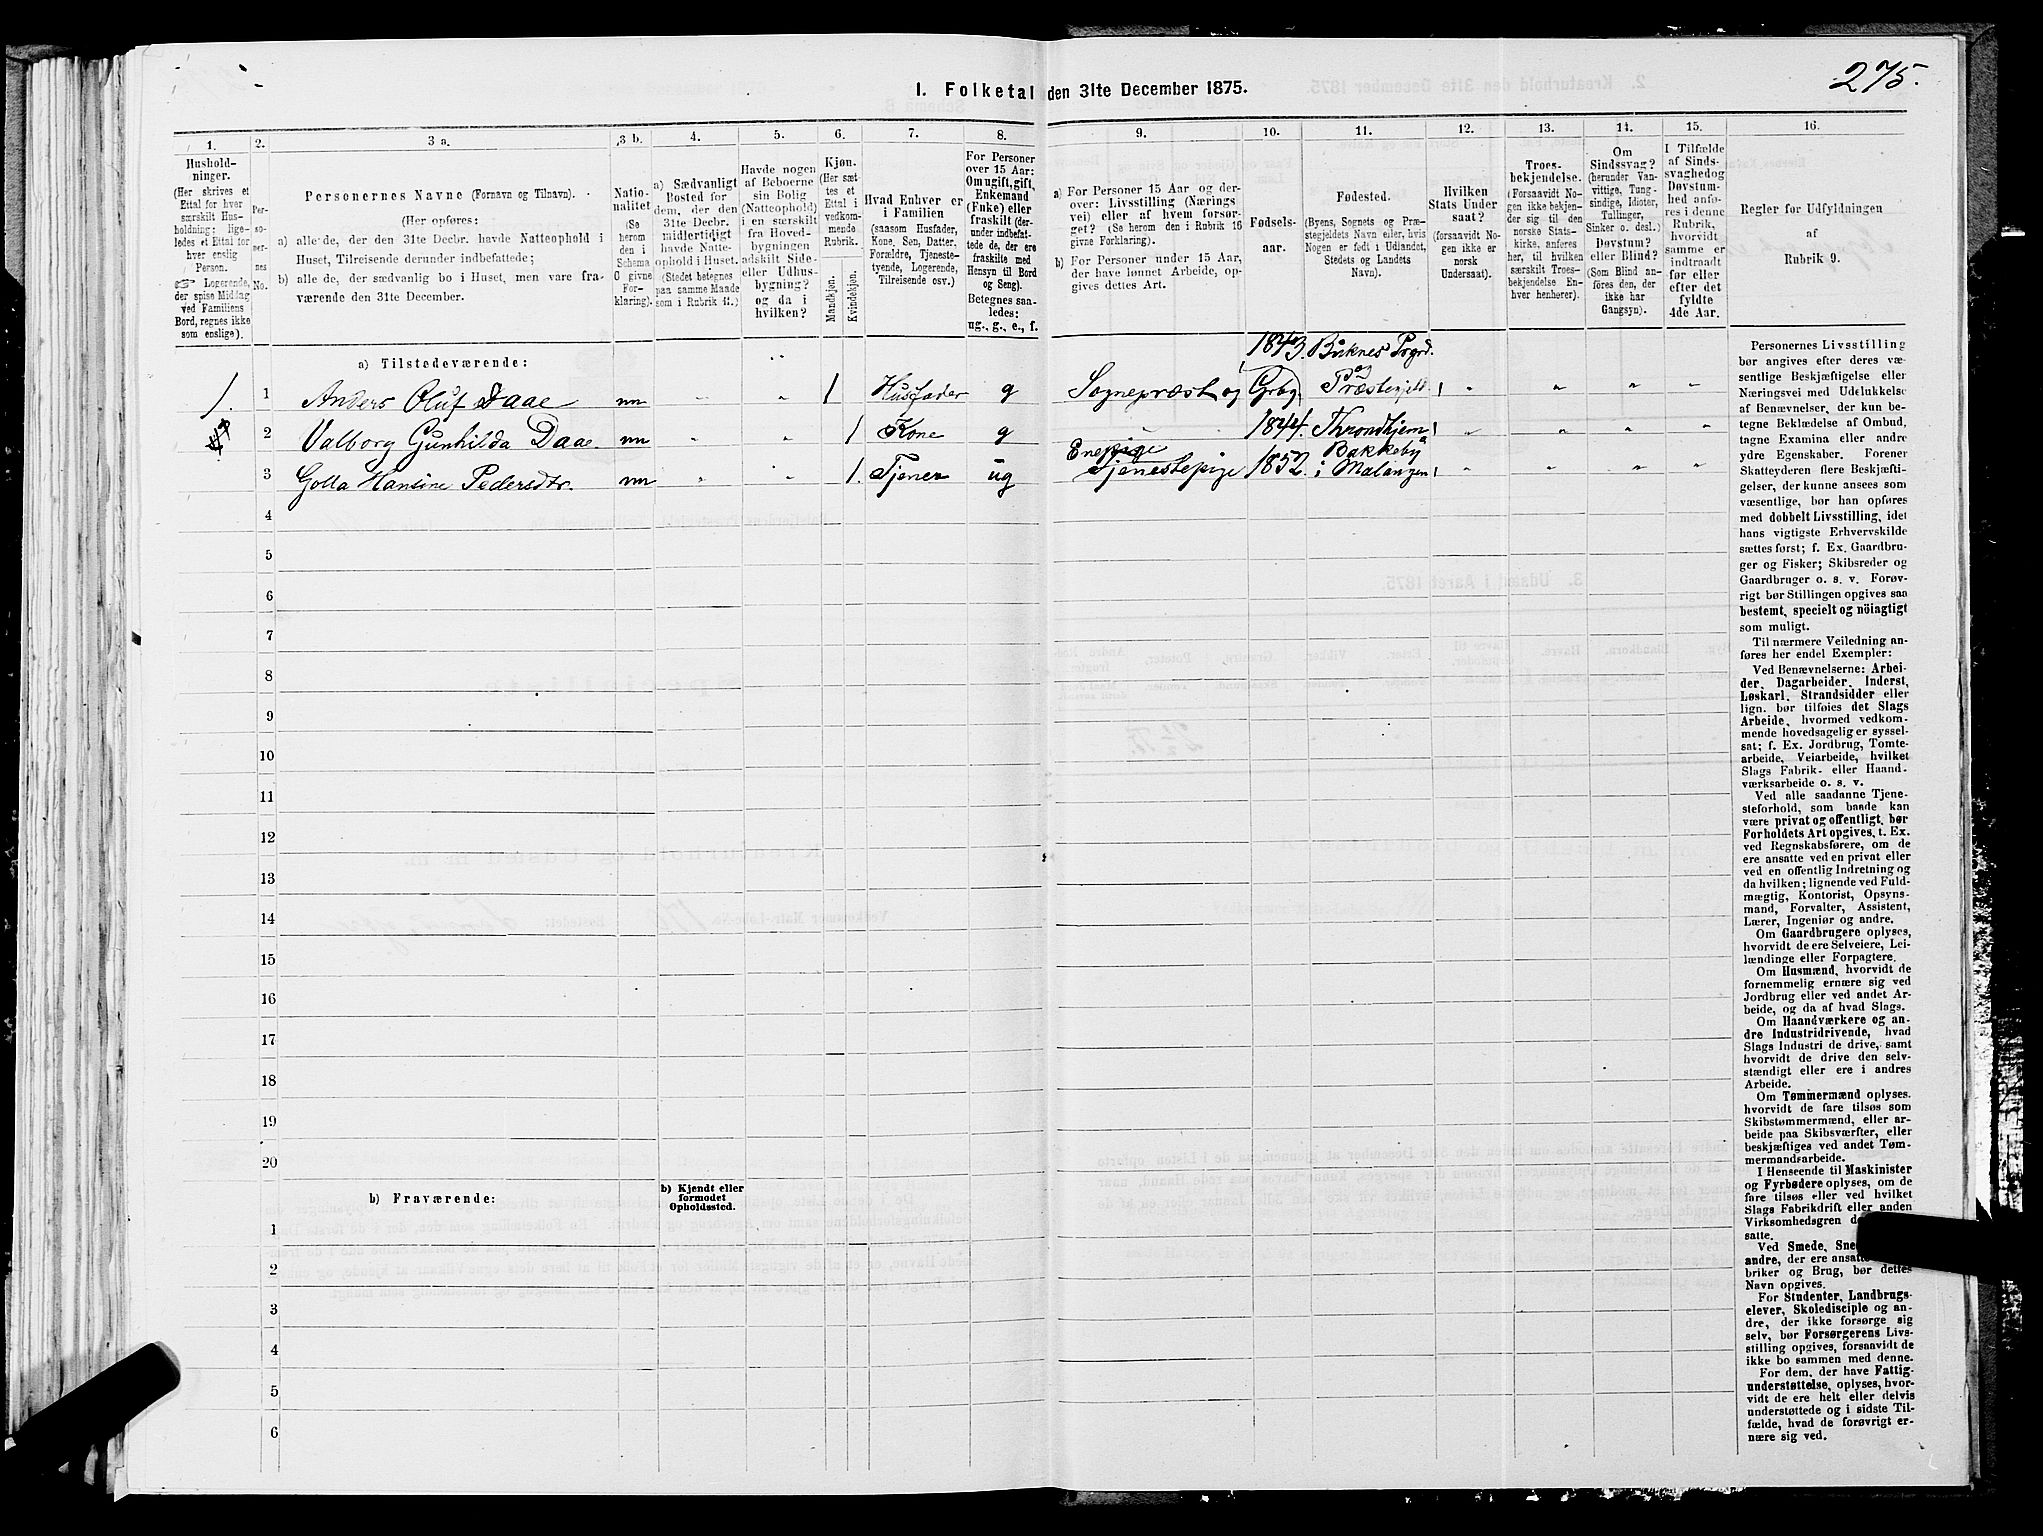 275.
I. Folketal den 31te December 1875.
1.
Hushold-
ninger.
(Her skrives et
Ettal for hver
særskilt Hus-
holdning; lige-
ledes et Ettal for
hver enslig
Person.
☞ Logerende,
der spise Middag
ved Familiens
Bord, regnes ikke
som enslige).
2.
Per-
so-
ner-
nes
No.
3 a.
Personernes Navne (Fornavn og Tilnavn).
(Her opføres:
a) alle de, der den 31te Decbr. havde Natteophold i
Huset, Tilreisende derunder indbefattede;
b) alle de, der sædvanlig bo i Huset, men vare fra-
værende den 31te December.
3 b.
Natio-
nalitet
(Se
herom
den i
Schema
G givne
For-
klaring).
4.
a) Sædvanligt
Bosted for
dem, der den
31te Decbr.
midlertidigt
havde Natte-
ophold i Huset.
(Stedet betegnes
paa samme Maade
som i Rubrik 11.)
5.
Havde nogen
af Beboerne
sin Bolig
(Natteophold)
i en særskilt
fra Hoved-
bygningen
adskilt Side-
eller Udhus-
bygning?
og da i
hvilken?
6.
Kjøn.
(Her sæt-
tes et
Ettal i
vedkom-
mende
Rubrik.
Mandkjøn.
Kvindekjøn.
7.
Hvad Enhver er
i Familien
(saasom Husfader,
Kone, Søn, Datter.
Forældre, Tjeneste-
tyende, Logerende,
Tilreisende osv.)
8.
For Personer
over 15 Aar:
Om ugift, gift,
Enkemand
(Enke) eller
fraskilt (der-
under indbefat-
tede de, der ere
fraskilte med
Hensyn til Bord
og Seng).
Betegnes saa-
ledes:
ug., g., e., f.
9.
a) For Personer 15 Aar og der-
over: Livsstilling (Nærings-
vei) eller af hvem forsør-
get? (Se herom den i Rubrik 16
givne Forklaring).
b) For Personer under 15 Aar,
der have lønnet Arbeide, op-
gives dettes Art.
10.
Fødsels-
aar.
11.
Fødested.
(Byens, Sognets og Præ-
stegjeldets Navn eller, hvis
Nogen er født i Udlandet,
Stedets og Landets
Navn).
12.
Hvilken
Stats Under
saat?
(forsaavidt No-
gen ikke er
norsk
Undersaat).
13.
Troes-
bekjendelse.
(Forsaavidt No-
gen ikke bekjen-
der sig til den
norske Stats-
kirke, anføres
her, til hvilken
særskilt Troes-
bekjendelse En-
hver henhører).
14.
Om
Sindssvag?
(herunder Van-
vittige, Tung-
sindige, Idioter,
Tullinger,
Sinker o. desl.)
Døvstum?
eller Blind?
(Som Blind an-
føres den, der
ikke har
Gangsyn).
15.
I Tilfælde
af Sinds-
svaghed og
Døvstum-
hed anfø-
res i denne
Rubrik,
hvorvidt
samme er
indtraadt
før eller
efter det
fyldte
4de Aar.
16.
Regler før Udfyldningen
af
Rubrik 9.
a) Tilstedeværende:
1843. Præstgd.
1. 1 Anders Oluf Daae nn " " 1 Husfader g Sognepræst og Grbg. Præstegjeld " " " "
2 Valborg Gunhilda Daae nn " " 1 Kone g " 1844. Throndhjem " " " "
3 Golla Hansine Pedersdtr. nn " " 1. Tjener ug Enepige Tjenestepige 1852. Bakkeby i Malangen " " " "
4
5
6
7
8
9
10
11
12
13
14
15
16
17
18
19
20
b) Fraværende:
b) Kjendt eller
formodet
Opholdssted.
1
2
3
4
5
6
Personernes Livsstilling
bør angives efter deres væ-
sentlige Beskjæftigelse eller
Næringsvei med Udelukkelse
af Benævnelser, der kun be-
tegne Beklædelse af Ombud,
tagne Examina eller andre
ydre Egenskaber. Forener
Skatteyderen flere Beskjæfti-
gelser, der kunne ansees som
væsentlige, bør han opføres
med dobbelt Livsstilling, idet
hans vigtigste Erhvervskilde
sættes først; f. Ex. Gaardbru-
ger og Fisker; Skibsreder og
Gaardbruger o. s. v. Forøv-
rigt bør Stillingen opgives saa
bestemt, specielt og nöiagtigt
som muligt.
Til nærmere Veiledning an-
føres her endel Exempler:
Ved Benævnelserne: Arbei-
der, Dagarbeider, Inderst,
Løskarl, Strandsidder eller
lign. bør tilføies det Slags
Arbeide, hvormed vedkom-
mende hovedsagelig er syssel-
sat; f. Ex. Jordbrug, Tomte-
arbeide, Veiarbeide, hvilket
Slags Fabrik- eller Haand-
værksarbeide o. s. v.
Ved alle saadanne Tjene-
steforhold, som baade kan
være privat og offentligt, bør
Forholdets Art opgives, t. Ex.
ved Regnskabsførere, om de
ere ansatte ved en privat eller
ved en offentlig Indretning og
da hvilken; lignende ved Fuld-
mægtig, Kontorist, Opsyns-
mand, Forvalter, Assistent,
Lærer, Ingeniør og andre.
Om Gaardbrugere oplyses,
hvorvidt de ere Selveiere, Lei-
lændinge eller Forpagtere.
Om Husmænd, hvorvidt de
fornemmelig ernære sig ved
Jordbrug eller ved andet Ar-
beide, og da af hvad Slags.
Om Haandværkere og an-
dre Industridrivende, hvad
Slags Industri de drive, samt
hvorvidt de drive den selv-
stændigt eller ere i andres
Arbeide.
Om Tømmermænd oplyses.
hvorvidt de fare tilsøs som
Skibstømmermænd, eller ar-
beide paa Skibsværfter, eller
beskjæftiges ved andet Tøm-
mermandsarbeide.
I Henseende til Maskinister
og Fyrbødere oplyses, om de
fare tilsøs eller ved hvilket
Slags Fabrikdrift eller anden
Virksomhedsgren de
satte.
Ved Smede,
andre, der ere ansatte
briker og Brug, bør dettes
Navn opgives.
For Studenter, Landbrugs-
elever, Skoledisciple og an-
dre, der ikke forsørge sig
selv, bør Forsørgerens Livs-
stilling opgives, forsaavidt de
ikke bo sammen med denne.
For dem, der have Fattig-
understøttelse, oplyses, hvor-
vidt de ere helt eller delvis
understøttede og i sidste Til-
fælde, hvad de forøvrigt er-
nære sig ved.